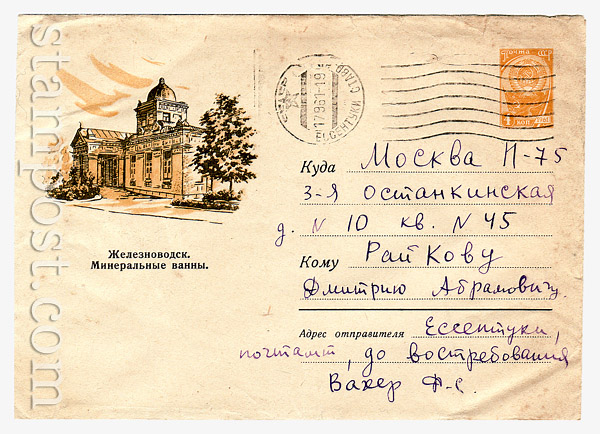 stampost.com
ПОЧТА СССР
4 КОП
17 9 61-19
ЕССЕНТУКИ СТАВР
Куда Москва П-75
3-я Останкинская
д. N 10 кв. N 45
Железноводск.
Минеральные ванны.
Кому Райкову
Дмитрию Абрамовичу.
Адрес отправителя Ессентуки,
почтамт, до востребования
Вахер Ф-с.